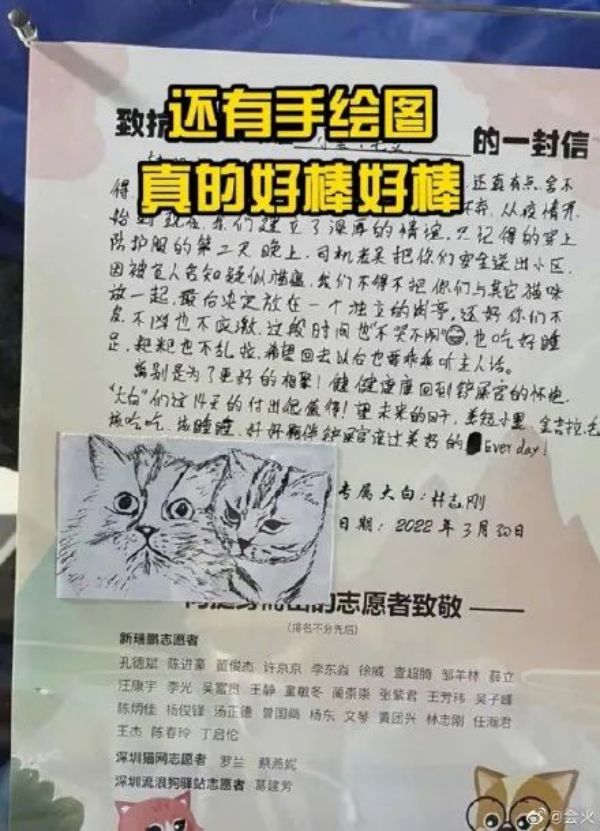 还有手绘图
真的好棒好棒
致抗
的一封信
还真有点舍不
得
从疫情开
始到现在,我们建立了深厚的情谊。只记得的穿上
防护服的第二天晚上,司机老吴把你们安全送出小区,
因被主人告知疑似猫瘟,我们不得不把你们与其它猫咪
放一起,最后决定放在一个独立的岗亭。还好你们不
不凶也不应激,这段时间也"不哭不闹"😄,也吃好睡
足,粑粑也不乱拉,希望回去以后也要乖乖听主人话。
离别是为了更好的相聚!健健康康回到铲屎官的怀抱,
"大白"们这14天的付出很值得!望未来的日子,美短小黑、金吉拉毛
该吃吃、该睡睡、好好陪伴铲屎官度过美好的Ever day!
专属大白:林志刚
日期:2022年3月30日
的志愿者致敬——
(排名不分先后)
新瑞鹏志愿者
孔德斌 陈进豪 董俊杰 许京京 李东焱 徐威 查超腾 邹羊林 薛立
汪康宇 李光 吴富贵 王静 童敏冬 蔺崇崇 张紫君 王芳玮 吴子峰
陈炳佳 杨俊锋 汤正德 曾国裔 杨东 文琴 黄团兴 林志刚 任瀚君
王杰 陈春玲 丁启伦
深圳猫网志愿者 罗兰 蔡燕妮
深圳流浪狗驿站志愿者 葛建芳
@会火